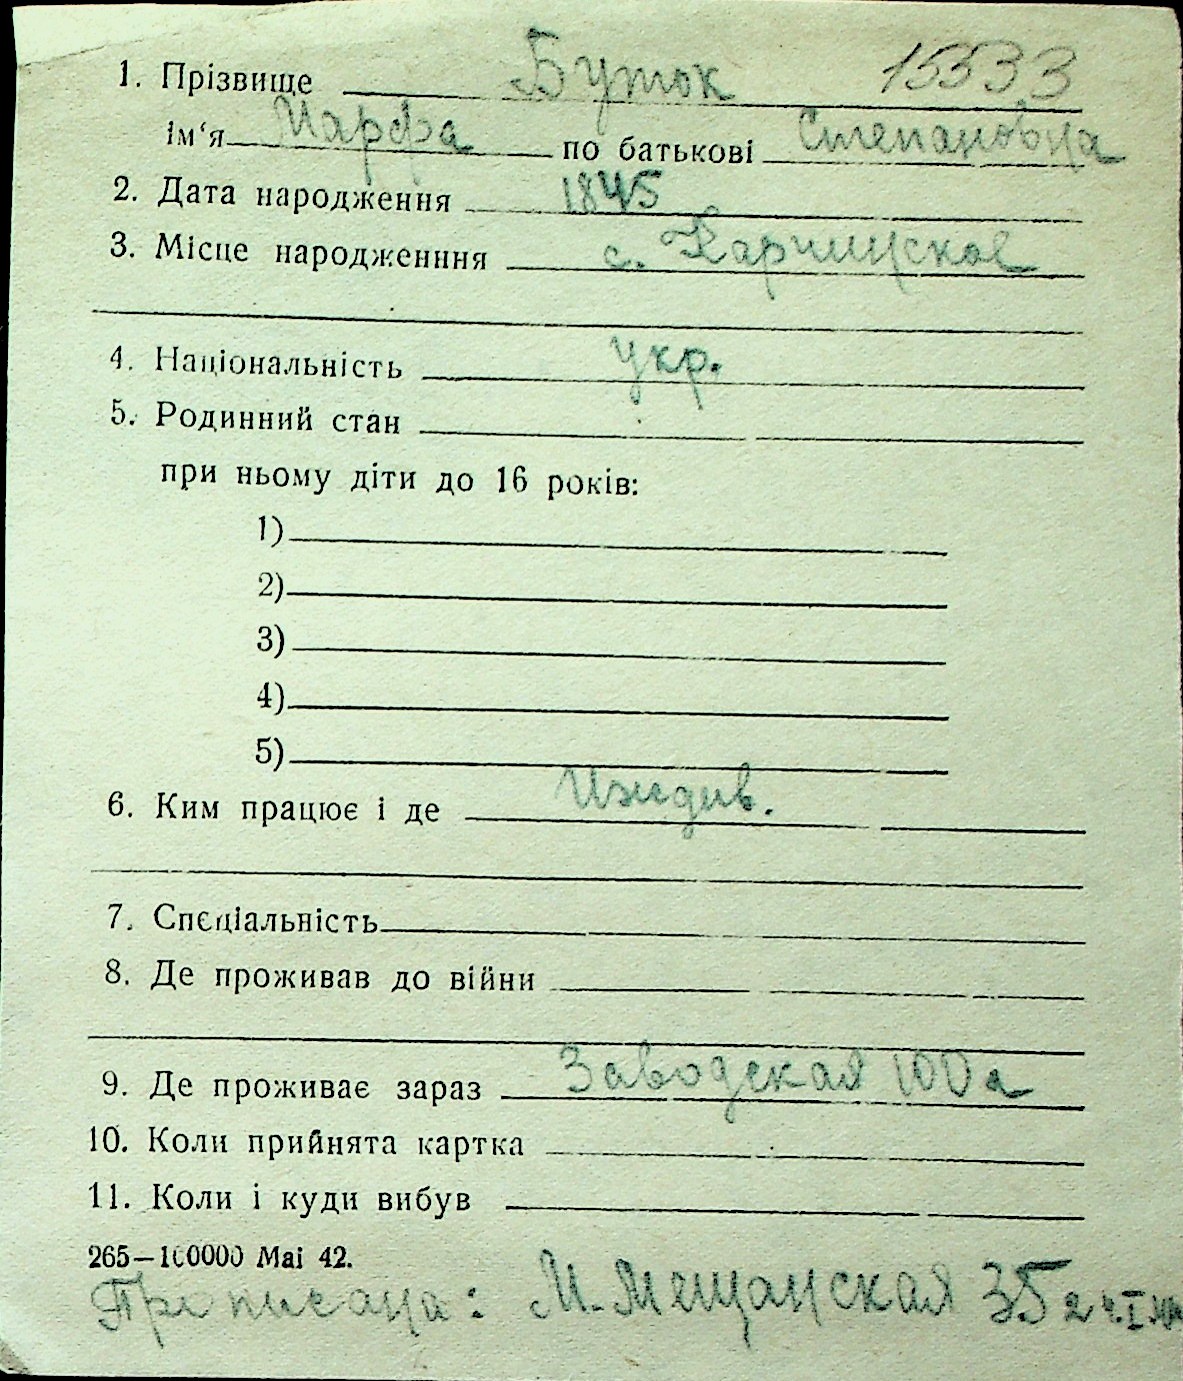 1. Прізвище Буток 15533
Ім‘я Марфа по батькові Степановна
2. Дата народження 1845
3. Місце народженння с.
4. Національність укр.
5. Родинний стан
при ньому діти до 16 років:
1)
2)
3)
4)
5)
6. Ким працює і де Иждив.
7. Спєціальність
8. Де проживав до війни
9. Де проживає зараз Заводская 100а
10. Коли прийнята картка
11. Коли і куди вибув
265—100000 Mai 42.
Прописана: М. Мещанская 35